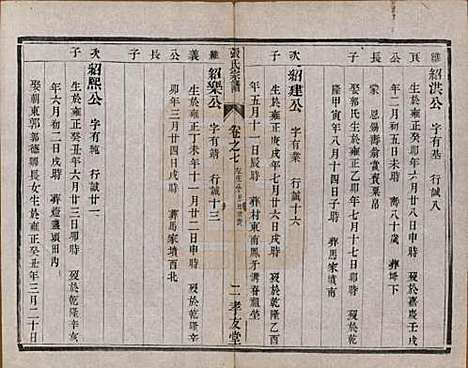 維
紹洪公 字有基 行誠八
長 公 民
生於雍正癸卯年六月廿八日申時 歿於嘉慶壬戌
年二月初五日未時 壽八十歲 葬塔下
蒙 恩錫壽翁賞賚粟帛
娶郭氏生於雍正乙卯年七月十七日卯時
隆甲寅年八月十四日子時 葬馬家墳南
次子
紹建公 字有業 行誠十六
生於雍正 戌年七月廿六日戌時 歿於乾隆
年五月十一日辰時 葬村東南鳳牙溝春觀塋
張氏宗譜
卷之七
二 孝友堂
維
紹樂公 字有靖 行誠十三
長 公 義
生於雍正丁未年十一月廿二日申時 歿於乾隆辛
卯年三月廿四日戌時 葬馬家墳西北
次子
紹熙公 字有純 行誠廿一
生於雍正癸丑年六月廿三日卯時 歿於乾隆辛亥
年六月初二日戌時 葬燈盞頭田內
娶前東郭郭德驛長女生於雍正癸丑年三月二十日